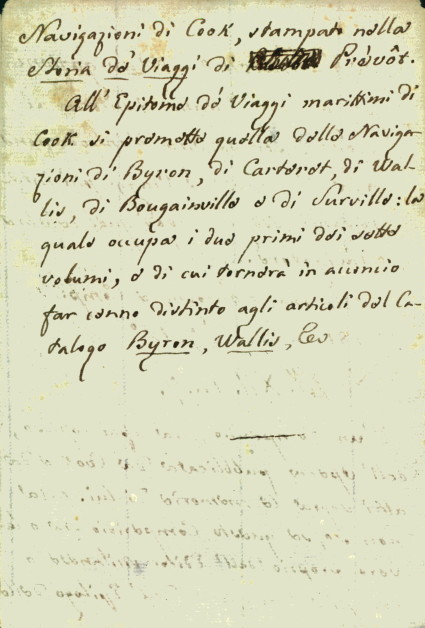 Navigazioni di Cook, stampate nella
Storia de' Viaggi di Prévôt.
All' Epitome de' Viaggi marittimi di
Cook si premette quella delle Naviga-
zioni di Byron, di Carteret, di Wal-
lis, di Bougainville e di Surville: la
quale occupa i due primi dei sette
volumi, e di cui tornerà in acconcio
far cenno distinto agli articoli del Ca-
talogo Byron, Wallis, &c